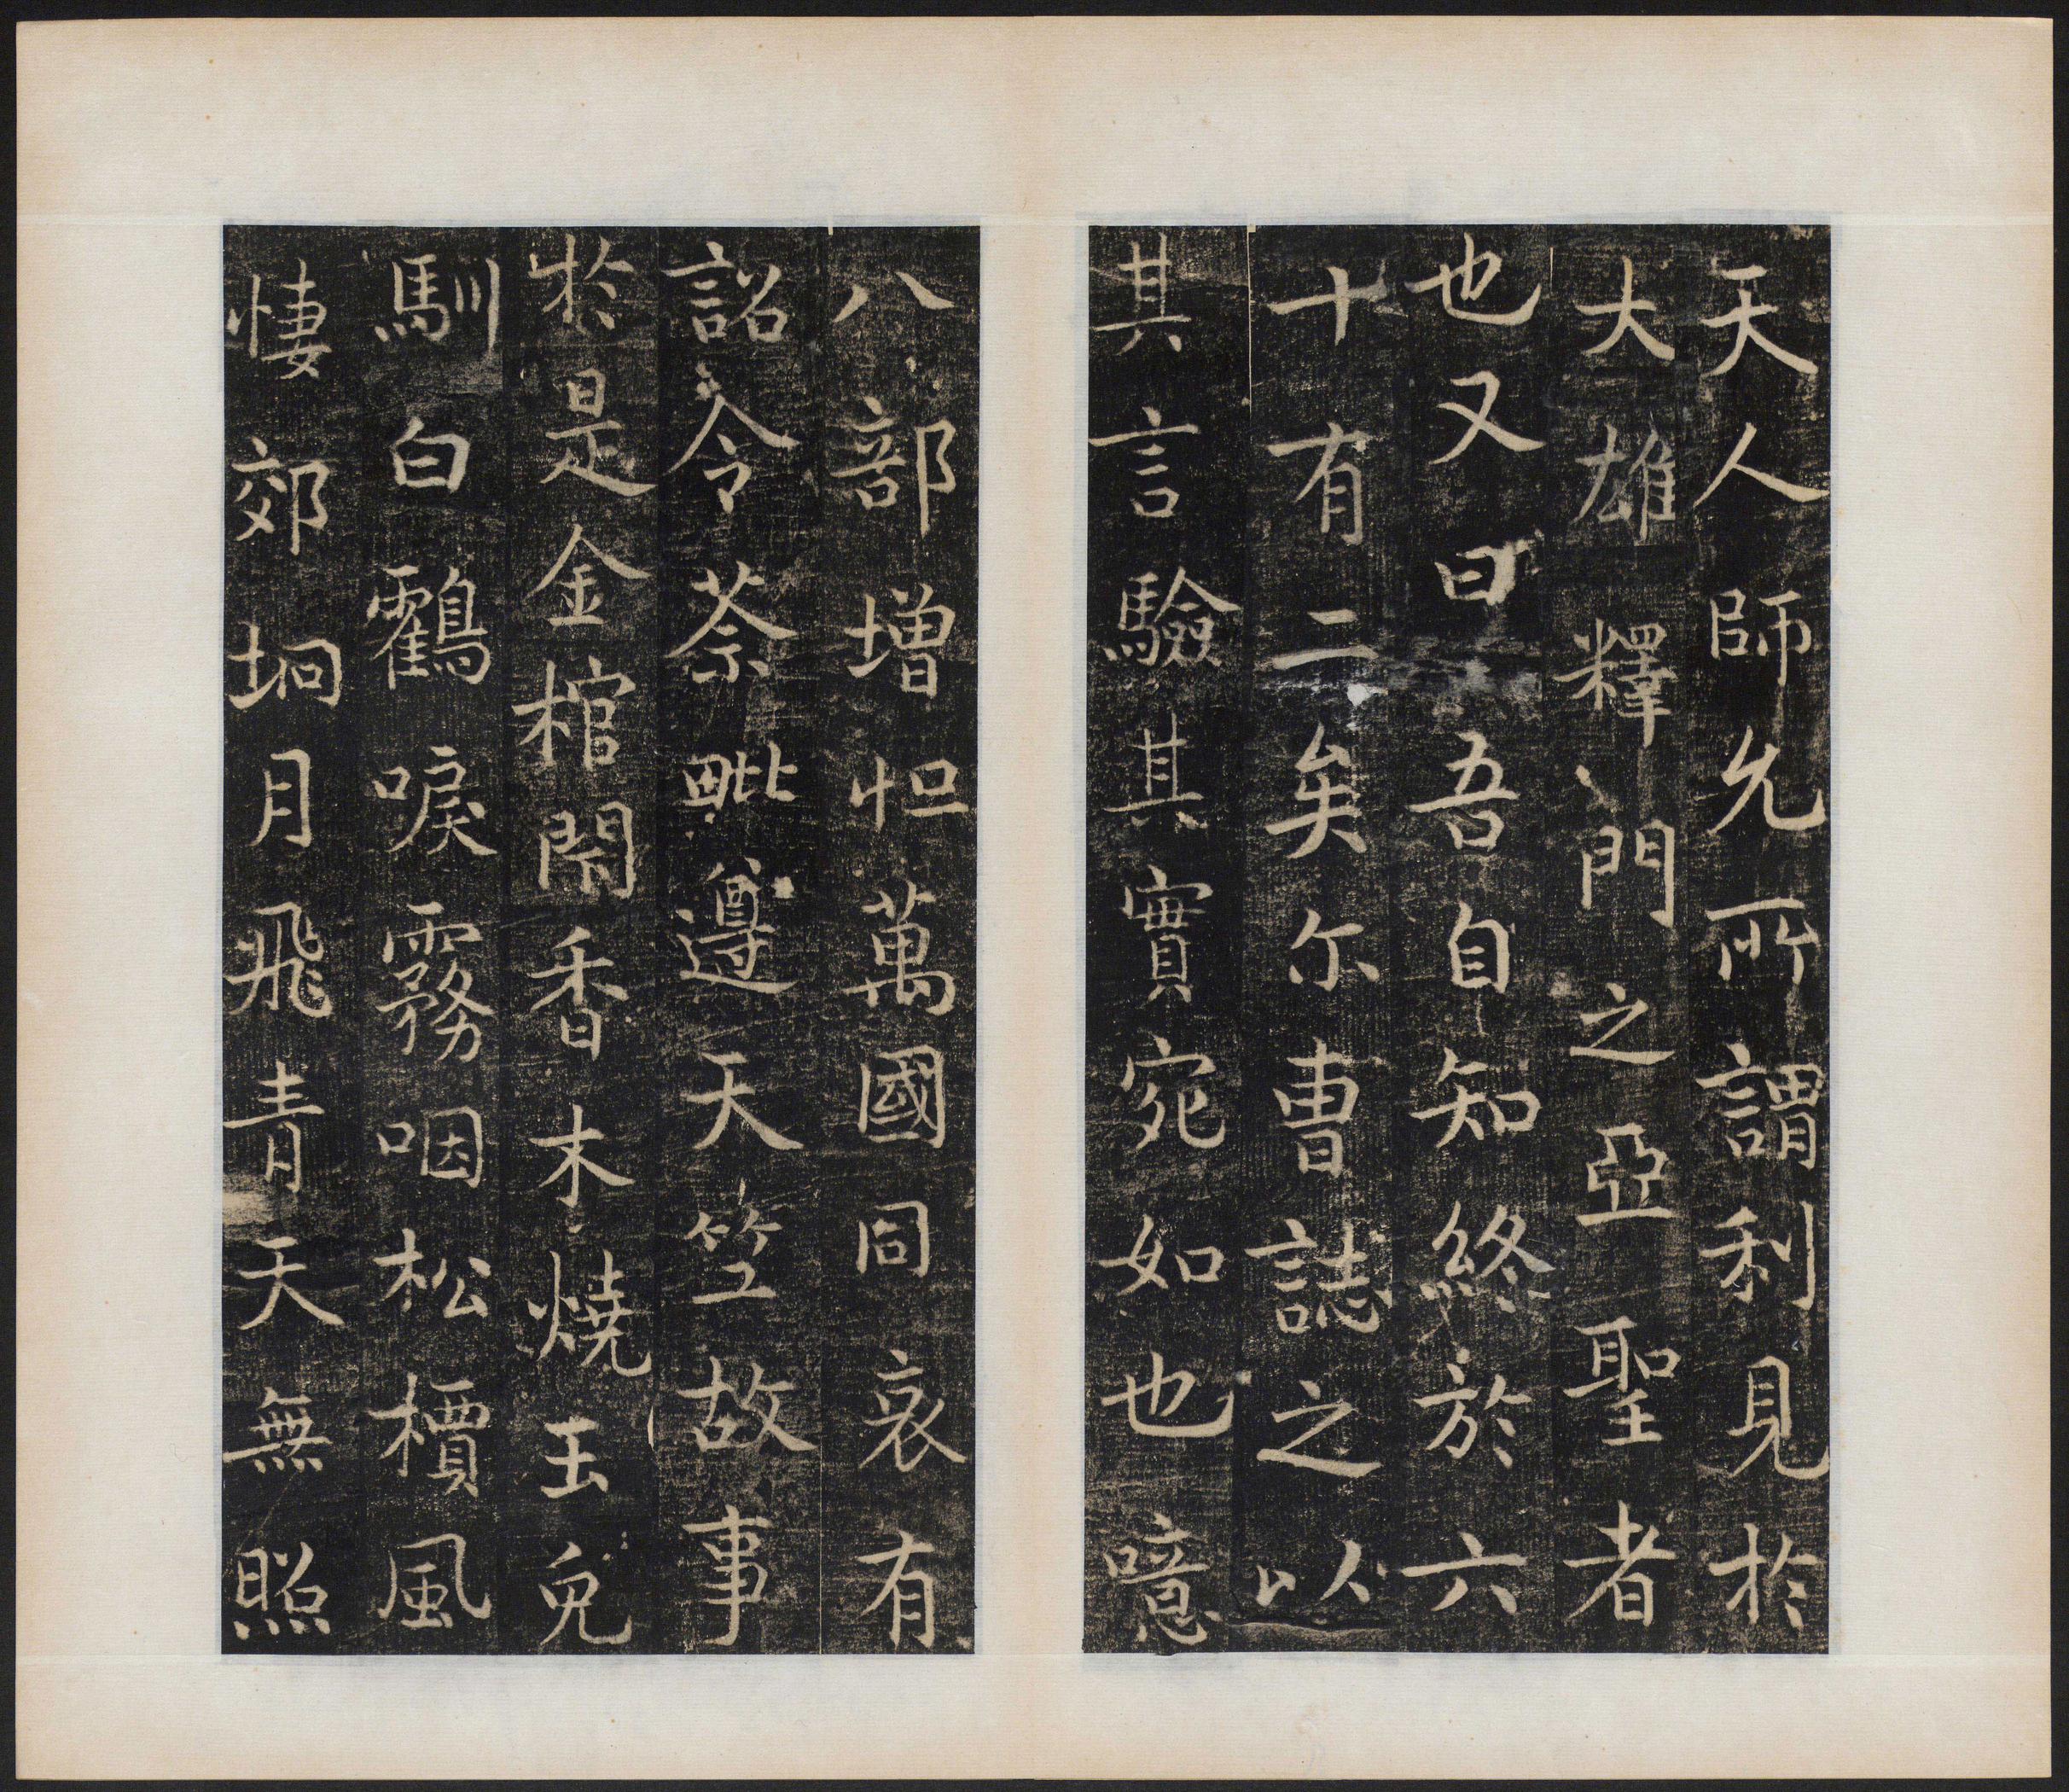 天人師允所謂利見於
大雄釋門之亞聖者
也又曰吾自知終於六
十有二矣尓曺誌之以
其言驗其實宛如也噫
八部增怛萬國同哀有
詔令茶毗遵天笁故事
於是金棺閞香木燒玉皃
馴白鸖唳霧咽松檟風
悽郊坰月飛青天無照